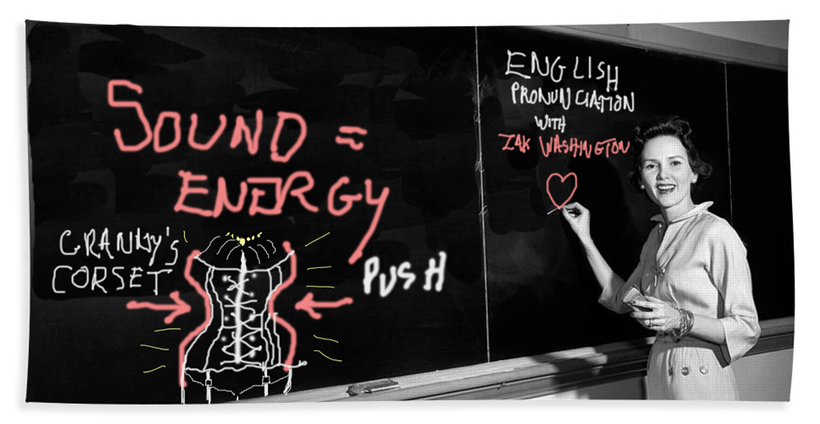 SOUND =
ENERGY
GRANNY'S
CORSET
PUSH
ENGLISH
PRONUNCIATION
WITH
IAK WASHINGTON